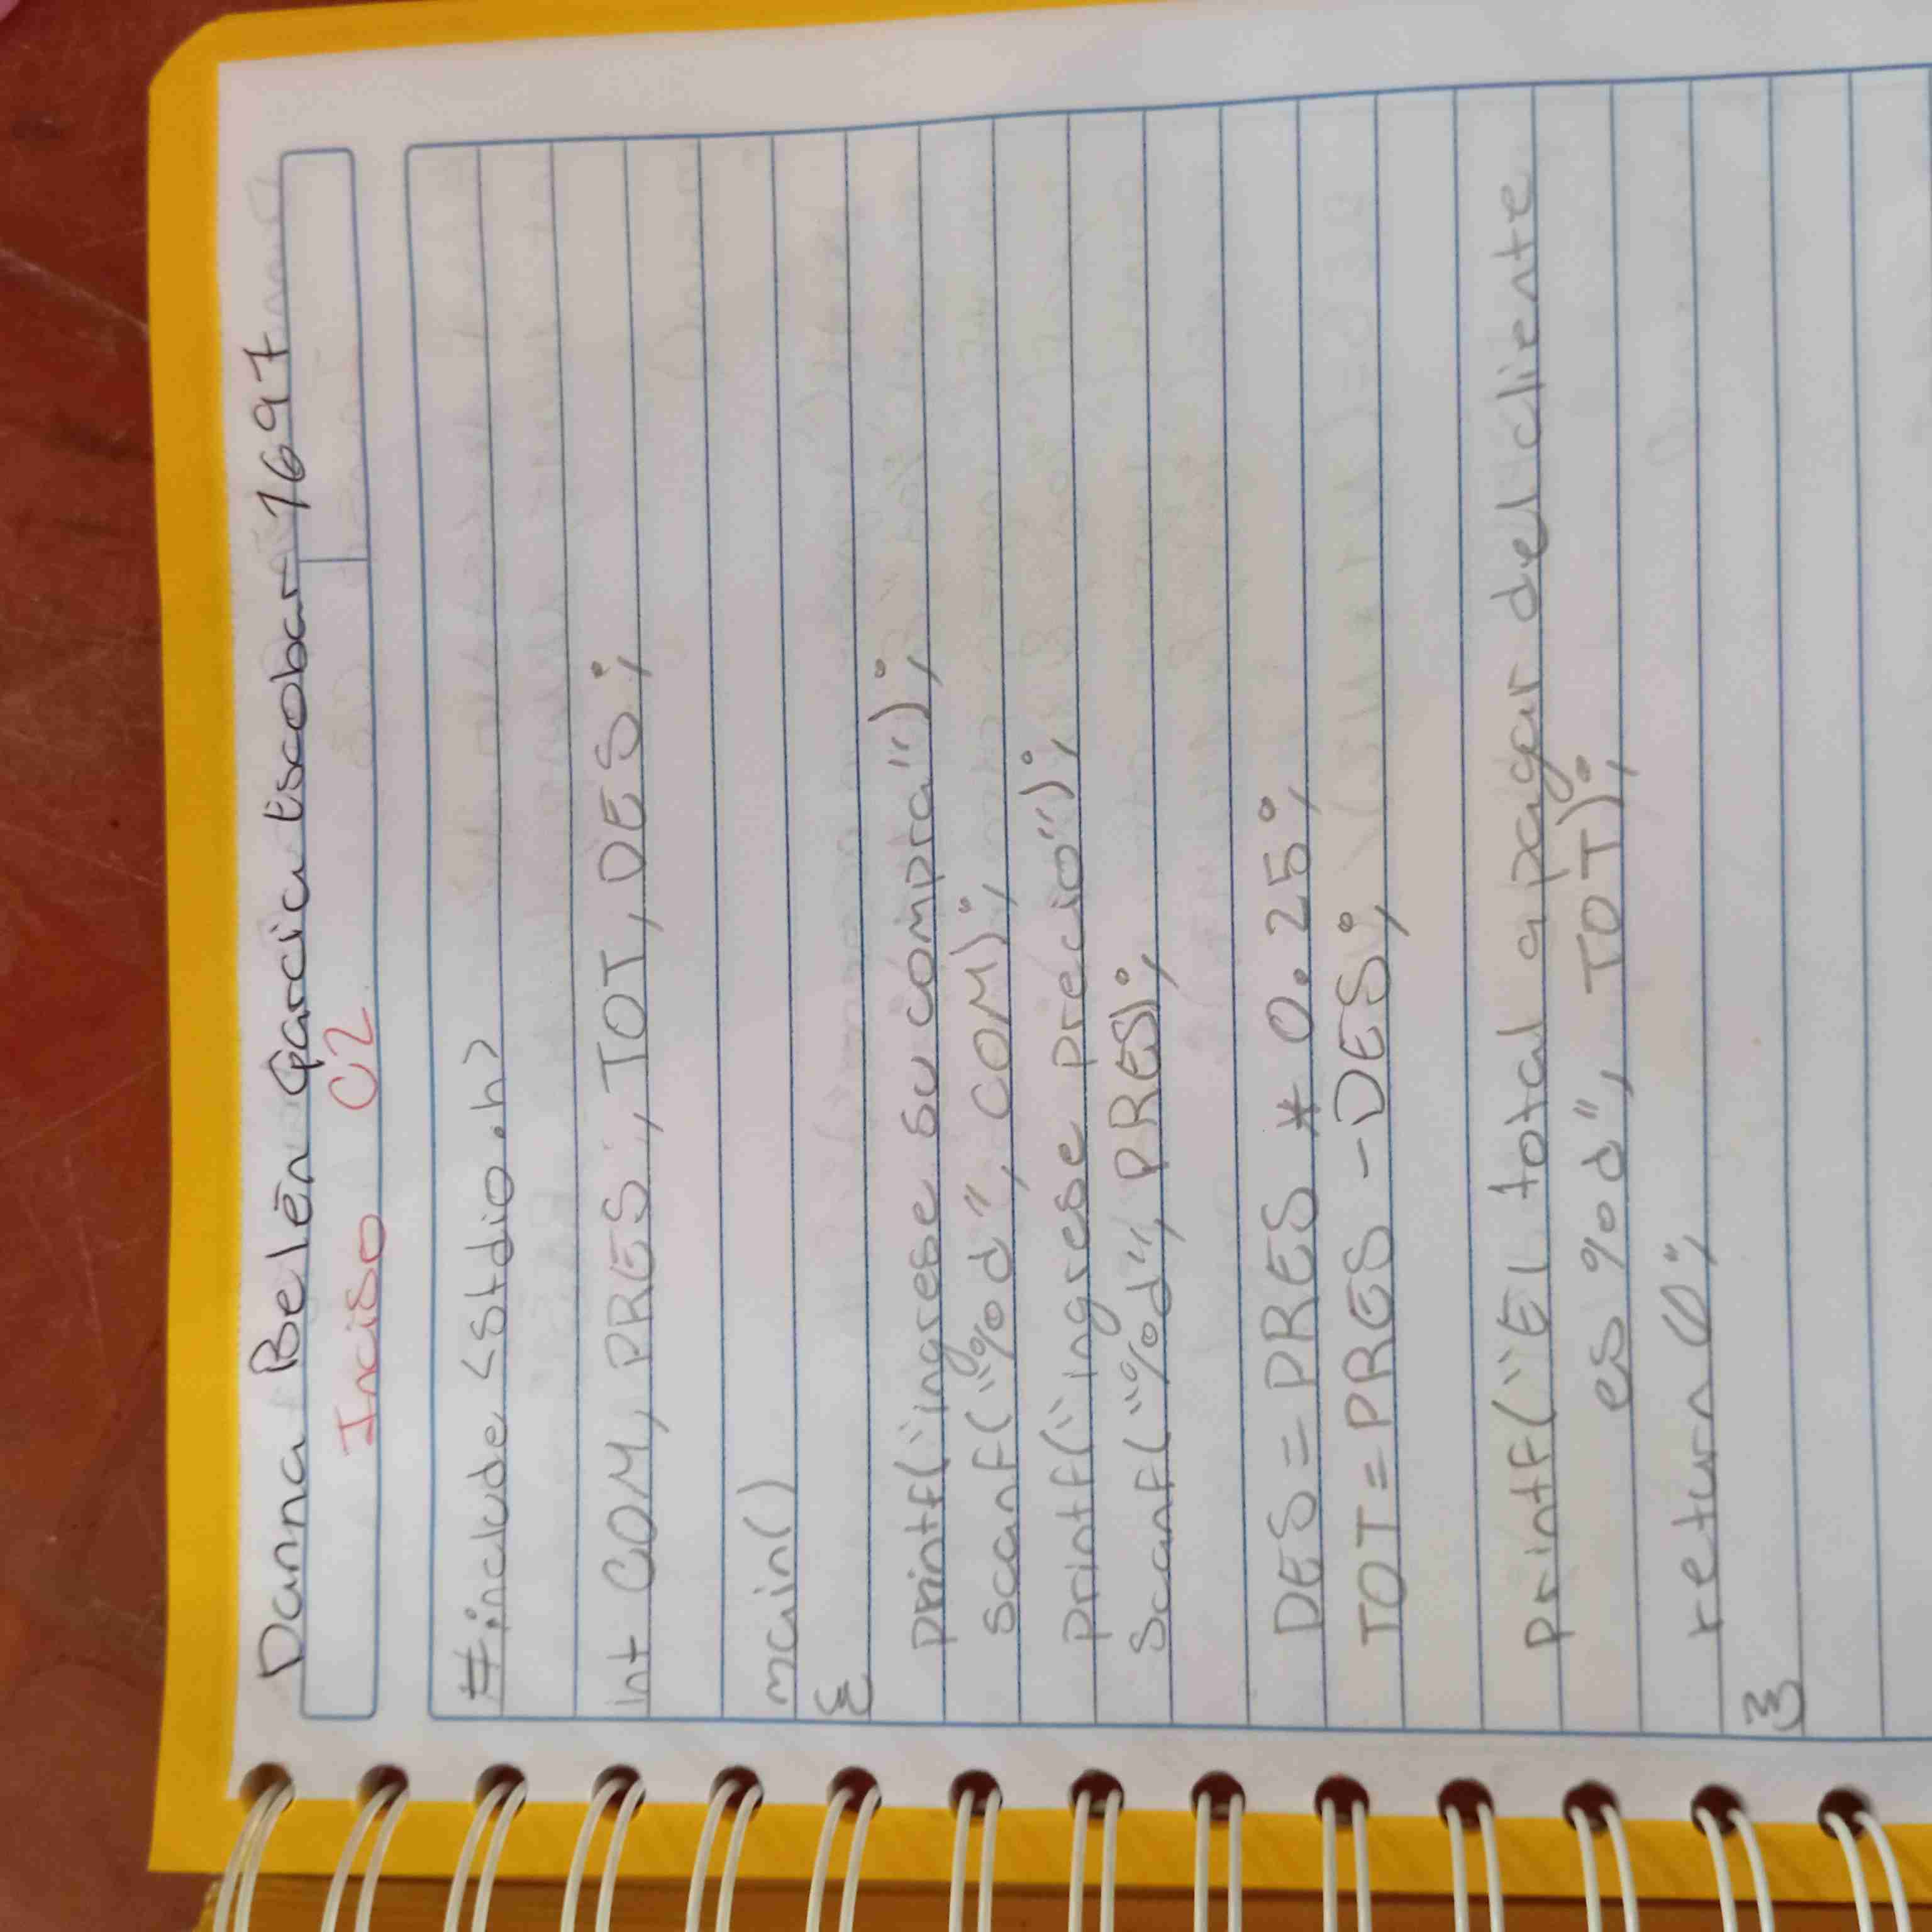 Danna Belén Garcia Escobar 1697
Inciso C2
#include <stdio.h>
int COM, PRES, TOT, DES;
main()
{
printf("ingrese su compra");
scanf("%d", COM);
printf("ingrese precio");
scanf("%d", PRES);
DES = PRES * 0.25;
TOT = PRES - DES;
printf("El total a pagar del cliente
es %d", TOT);
return 0;
}